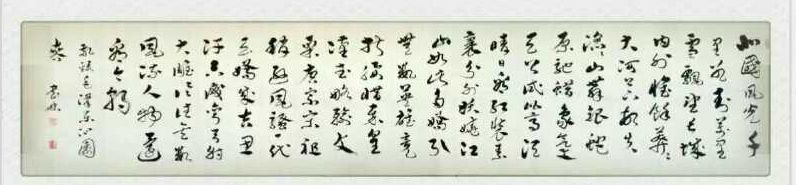 北國風光千
里冰封萬里
雪飄望長城
内外惟餘莽莽
大河上下頓失
滔滔山舞銀蛇
原馳蠟象欲与
天公試比高須
晴日看紅裝素
裹分外妖嬈江
山如此多嬌引
無數英雄競
折腰惜秦皇
漢武略輸文
采唐宗宋祖
稍遜風騷一代
天驕成吉思
汗只識彎弓射
大雕俱往矣數
風流人物還
看今朝
毛澤東沁園
春